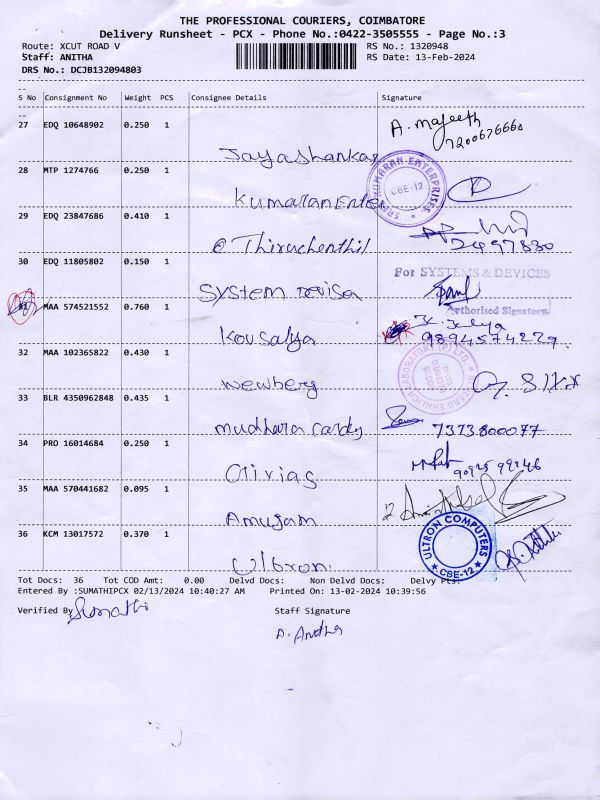 THE PROFESSIONAL COURIERS, COIMBATORE
Delivery Runsheet - PCX - Phone No.:0422-3505555 - Page No.:3
Route: XCUT ROAD V RS No.: 1320948
Staff: ANITHA RS Date: 13-Feb-2024
DRS No.: DCJB132094803
S No Consignment No Weight PCS Consignee Details Signature
27 EDQ 10648902 0.250 1
A. majeeth
7200676660
Jayashankar
28 MTP 1274766 0.250 1
SRI KUMARAN ENTERPRISES
CBE-12
Kumaran Enter
29 EDQ 23847686 0.410 1
Thiruchenthil
2497830
30 EDQ 11805802 0.150 1
For SYSTEMS & DEVICES
System
Authorised Signatory
31 MAA 574521552 0.760 1
Kousalya
9894574229
32 MAA 102365822 0.430 1
Newberg
33 BLR 4350962848 0.435 1
mudhara cards 7373800077
34 PRO 16014684 0.250 1
Olivias
35 MAA 570441682 0.095 1
Amugam
36 KCM 13017572 0.370 1
ULTRON COMPUTERS
CBE-12
Ultron
Tot Docs: 36 Tot COD Amt: 0.00 Delvd Docs: Non Delvd Docs: Delvy Pts:
Entered By :SUMATHIPCX 02/13/2024 10:40:27 AM Printed On: 13-02-2024 10:39:56
Verified By Sumathi Staff Signature
A. Anitha